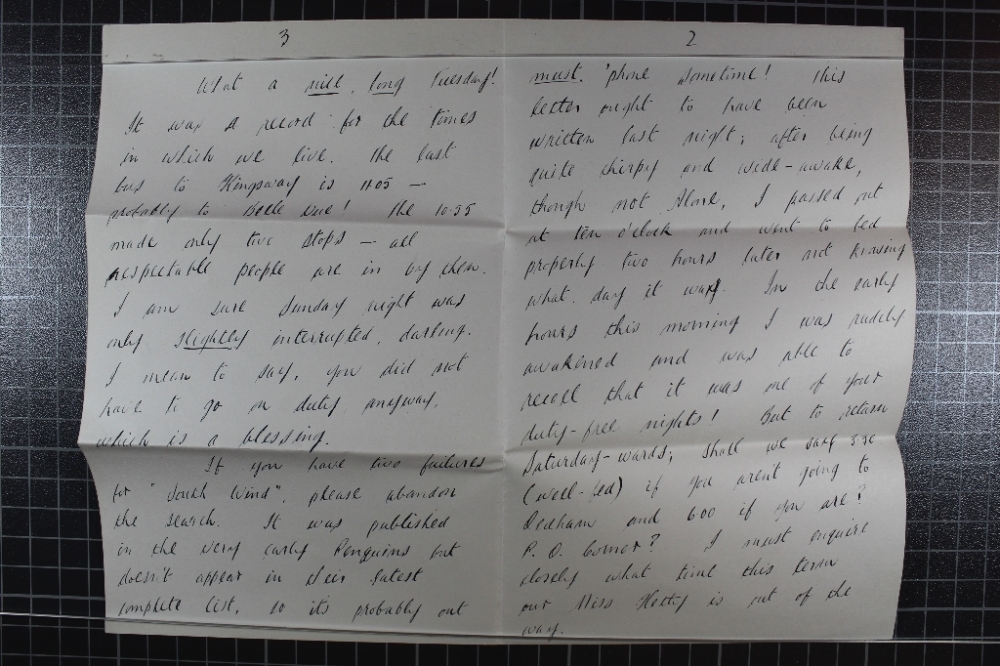 2
must 'phone sometime! This
letter ought to have been
written last night; after being
quite chirpy and wide-awake,
though not alone, I passed out
at ten o'clock and went to bed
properly two hours later not knowing
what day it was. In the early
hours this morning I was rudely
awakened and was able to
recall that it was one of your
duty-free nights! But to return
Saturday-wards; shall we say 5.30
(well-fed) if you aren't going to
Dedham and 6.00 if you are?
P. O. Corner? I must enquire
closely what time this term
our Miss Hetty is out of the
way.
3
What a nice, long Tuesday!
It was a record for the times
in which we live. The last
bus to Kingsway is 11.05 —
probably to Belle Vue! The 10.55
made only two stops — all
respectable people are in by then.
I am sure Sunday night was
only slightly interrupted, darling.
I mean to say, you did not
have to go on duty anyway,
which is a blessing.
If you have two failures
for "South Wind", please abandon
the search. It was published
in the very early Penguins but
doesn't appear in their latest
complete list, so it's probably out